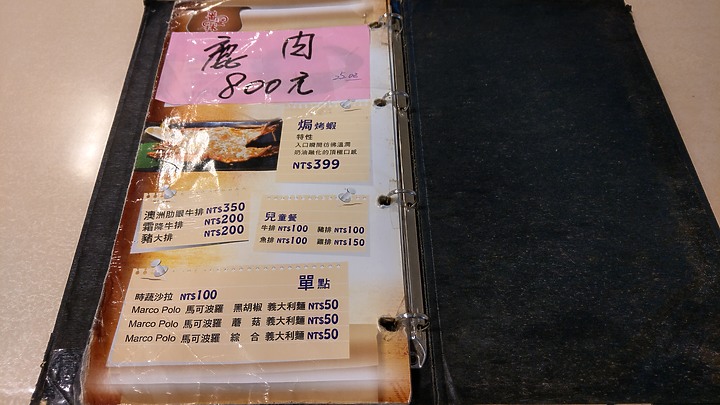 鹿 肉
800元
焗烤蝦
特性
入口瞬間彷彿溫潤
奶油融化的頂極口感
NT$399
澳洲肋眼牛排 NT$350
霜降牛排 NT$200
豬大排 NT$200
兒童餐
牛排 NT$100 豬排 NT$100
魚排 NT$100 雞排 NT$150
單點
時蔬沙拉 NT$100
Marco Polo 馬可波羅 黑胡椒 義大利麵 NT$50
Marco Polo 馬可波羅 蘑 菇 義大利麵 NT$50
Marco Polo 馬可波羅 綜 合 義大利麵 NT$50